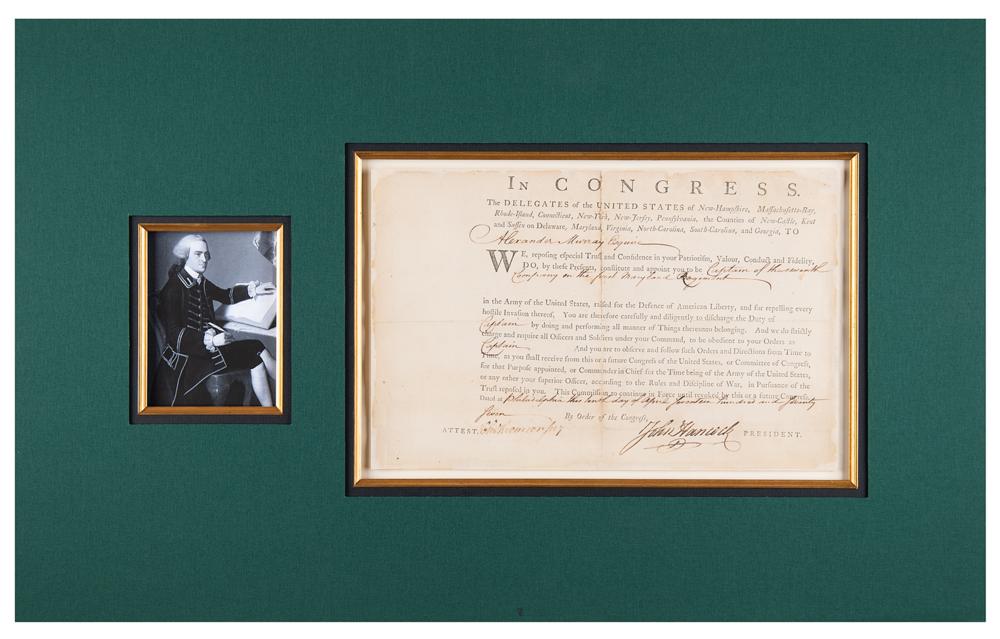 IN CONGRESS.
The DELEGATES of the UNITED STATES of New-Hampshire, Massachusetts-Bay,
Rhode-Island, Connecticut, New-York, New-Jersey, Pennsylvania, the Counties of New-Castle, Kent
and Sussex on Delaware, Maryland, Virginia, North-Carolina, South-Carolina, and Georgia, TO
Alexander Murray Esquire
WE, reposing eſpecial Truſt and Confidence in your Patriotiſm, Valour, Conduct and Fidelity,
DO, by theſe Preſents, conſtitute and appoint you to be Captain of the seventh
Company in the first Maryland Regiment
in the Army of the United States, raiſed for the Defence of American Liberty, and for repelling every
hoſtile Invaſion thereof. You are therefore carefully and diligently to diſcharge the Duty of
Captain by doing and performing all manner of Things thereunto belonging. And we do ſtrictly
charge and require all Officers and Soldiers under your Command, to be obedient to your Orders as
Captain And you are to obſerve and follow ſuch Orders and Directions from Time to
Time, as you ſhall receive from this or a future Congreſs of the United States, or Committee of Congreſs,
for that Purpoſe appointed, or Commander in Chief for the Time being of the Army of the United States,
or any other your ſuperior Officer, according to the Rules and Diſcipline of War, in Purſuance of the
Truſt repoſed in you. This Commiſſion to continue in Force until revoked by this or a future Congreſs.
Dated at Philadelphia this tenth day of April Seventeen hundred and Seventy
Seven
By Order of the Congreſs,
ATTEST, John Hancock PRESIDENT.